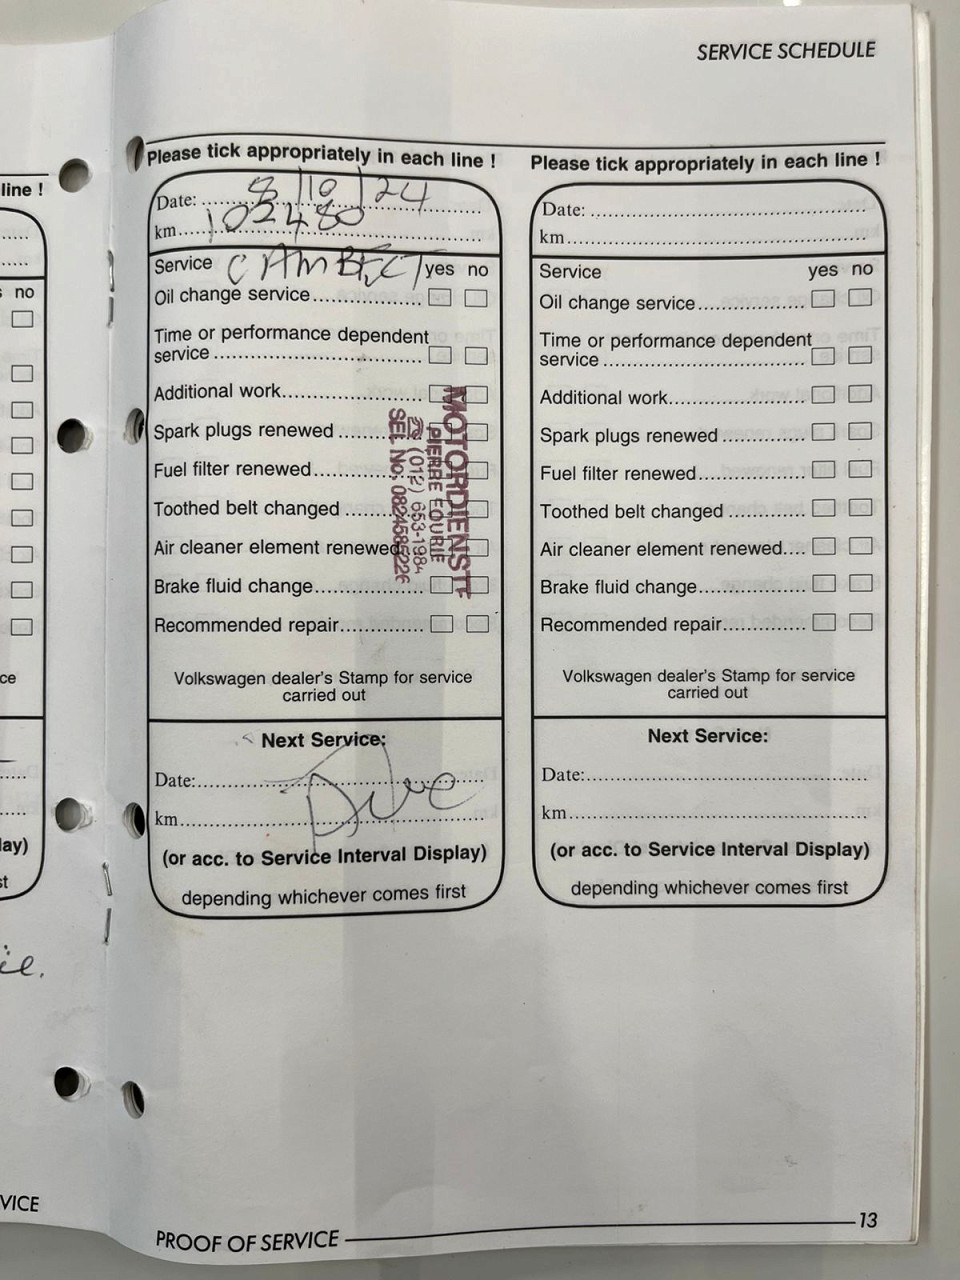 SERVICE SCHEDULE
line !
no
ce
lay)
st
VICE
Please tick appropriately in each line !
Date: 8/10/24
km 102480
Service CAMBELT yes no
Oil change service
Time or performance dependent
service
Additional work
Spark plugs renewed
Fuel filter renewed
Toothed belt changed
Air cleaner element renewed
Brake fluid change
Recommended repair
MOTORDIENSTE
PIERRE FOURIE
☎ (012) 653-1984
SEL No; 0824585226
Volkswagen dealer's Stamp for service
carried out
Next Service:
Date:
km
(or acc. to Service Interval Display)
depending whichever comes first
Please tick appropriately in each line !
Date:
km
Service yes no
Oil change service
Time or performance dependent
service
Additional work
Spark plugs renewed
Fuel filter renewed
Toothed belt changed
Air cleaner element renewed
Brake fluid change
Recommended repair
Volkswagen dealer's Stamp for service
carried out
Next Service:
Date:
km
(or acc. to Service Interval Display)
depending whichever comes first
PROOF OF SERVICE 13